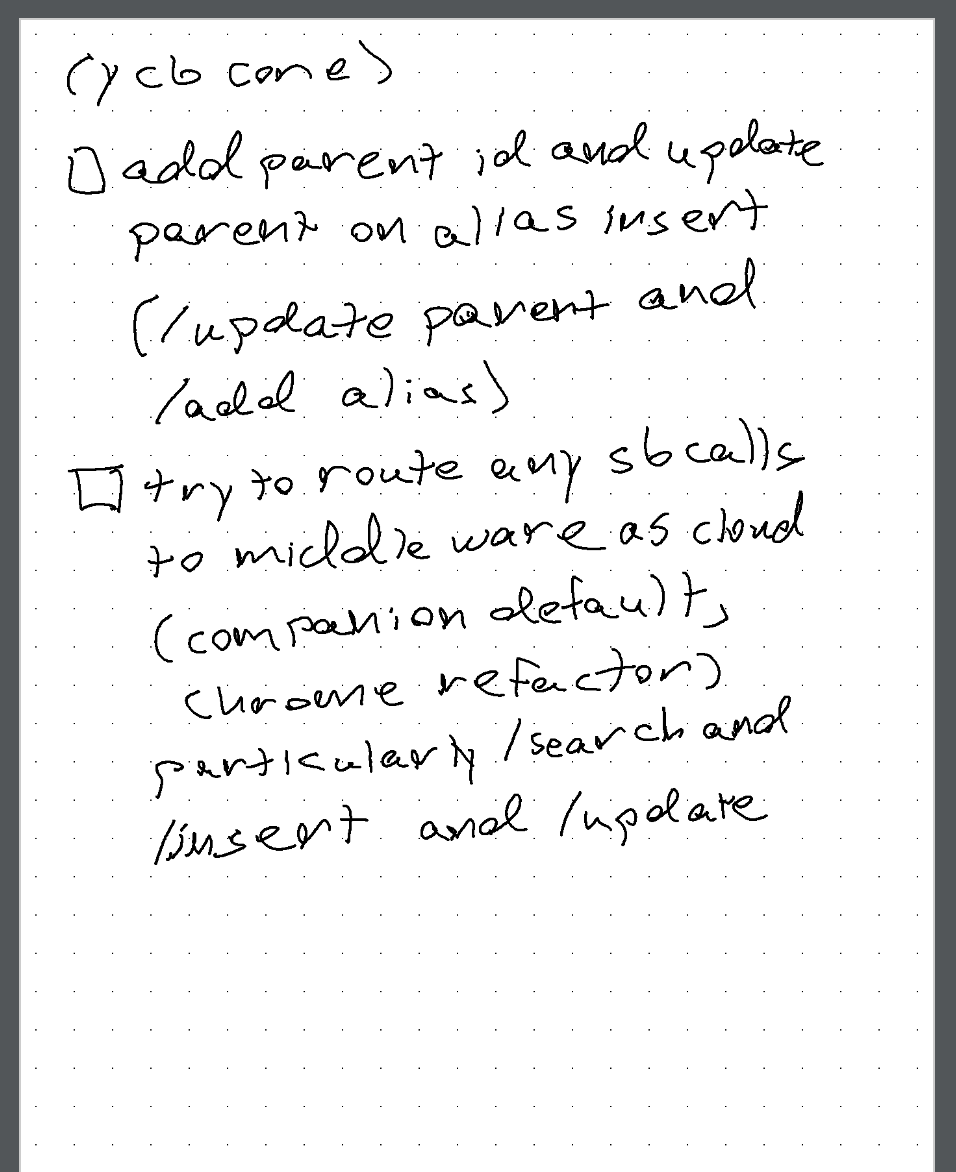 (ycb core)
add parent id and update
parent on alias insert
(/update parent and
/add alias)
try to route any sb calls
to middleware as cloud
(companion default,
chrome refactor)
particularly /search and
/insert and /update